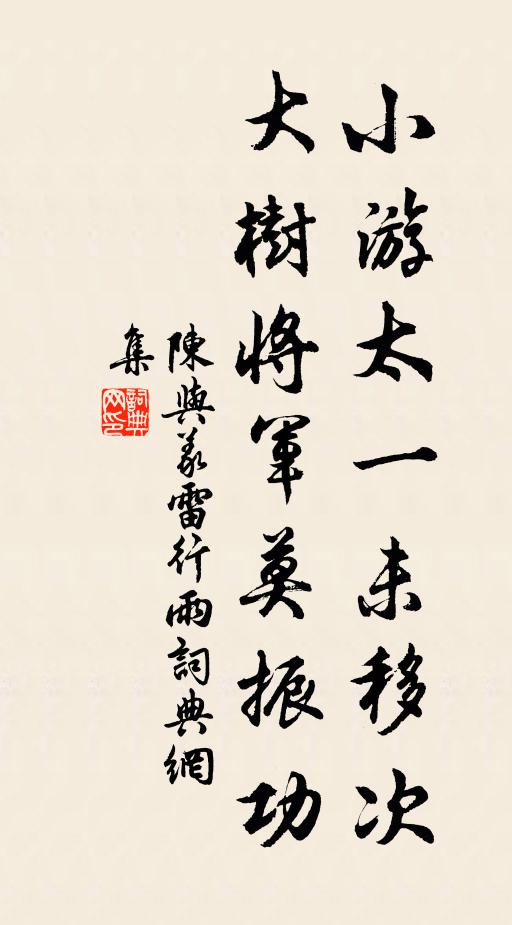 小游太一未移次
大樹將軍莫振功
陳與義雷行雨詞典網
集
詞典
网印